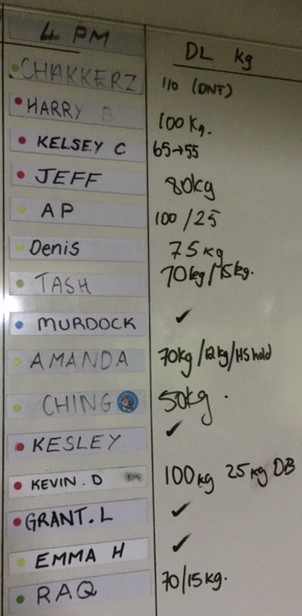 4 PM DL kg
CHAKKERZ 110 (DNF)
HARRY 100 kg.
KELSEY C 65→55
JEFF 80kg
AP 100/25
Denis 75 kg
TASH 70kg/15kg.
MURDOCK ✓
AMANDA 70kg/12kg/HS hold
CHING 50kg.
KESLEY ✓
KEVIN. D 100kg 25kg DB
GRANT. L ✓
EMMA H ✓
RAQ 70/15kg.